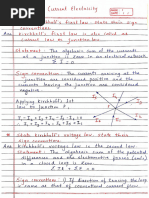 Current Electricity
Kirchhoff's first law state their sign
convention.
Ans Kirchhoff's first law is also called as
current law or junction law.
Statement - The algebraic sum of the currents
at a junction is zero in an electrical network
Σ I = 0
Sign convention - The currents arriving at the
junction are considered positive and the
currents leaving the junction are considered
negative.
Applying Kirchhoff's 1st
law to junction P,
Kirchhoff's voltage law. State their
sign convention.
Ans Kirchhoff's voltage law is the second law
Statement - The algebraic sum of the potential
differences and the electromotive forces (emfs)
in a closed loop is zero.
Sign convention - (1) If direction of tracing the loop
is same as that of conventional current flow,